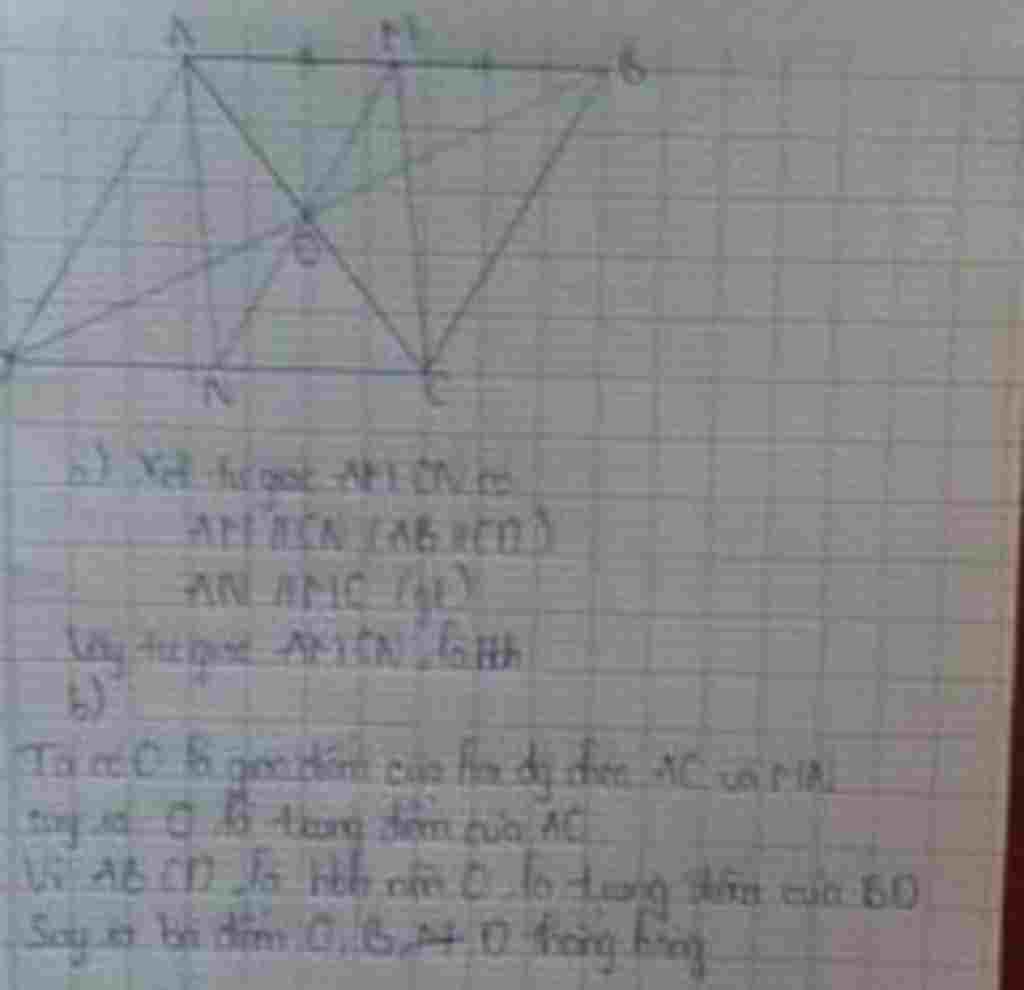 A M B
O
N C
a) Xét tứ giác AMCN có
AM // CN (AB // CD)
AN // MC (gt)
Vậy tứ giác AMCN là Hbh
b)
Ta có O là giao điểm của hai đg chéo AC và MN
suy ra O là trung điểm của AC
Vì ABCD là Hbh nên O là trung điểm của BD
Suy ra ba điểm O, B, D thẳng hàng